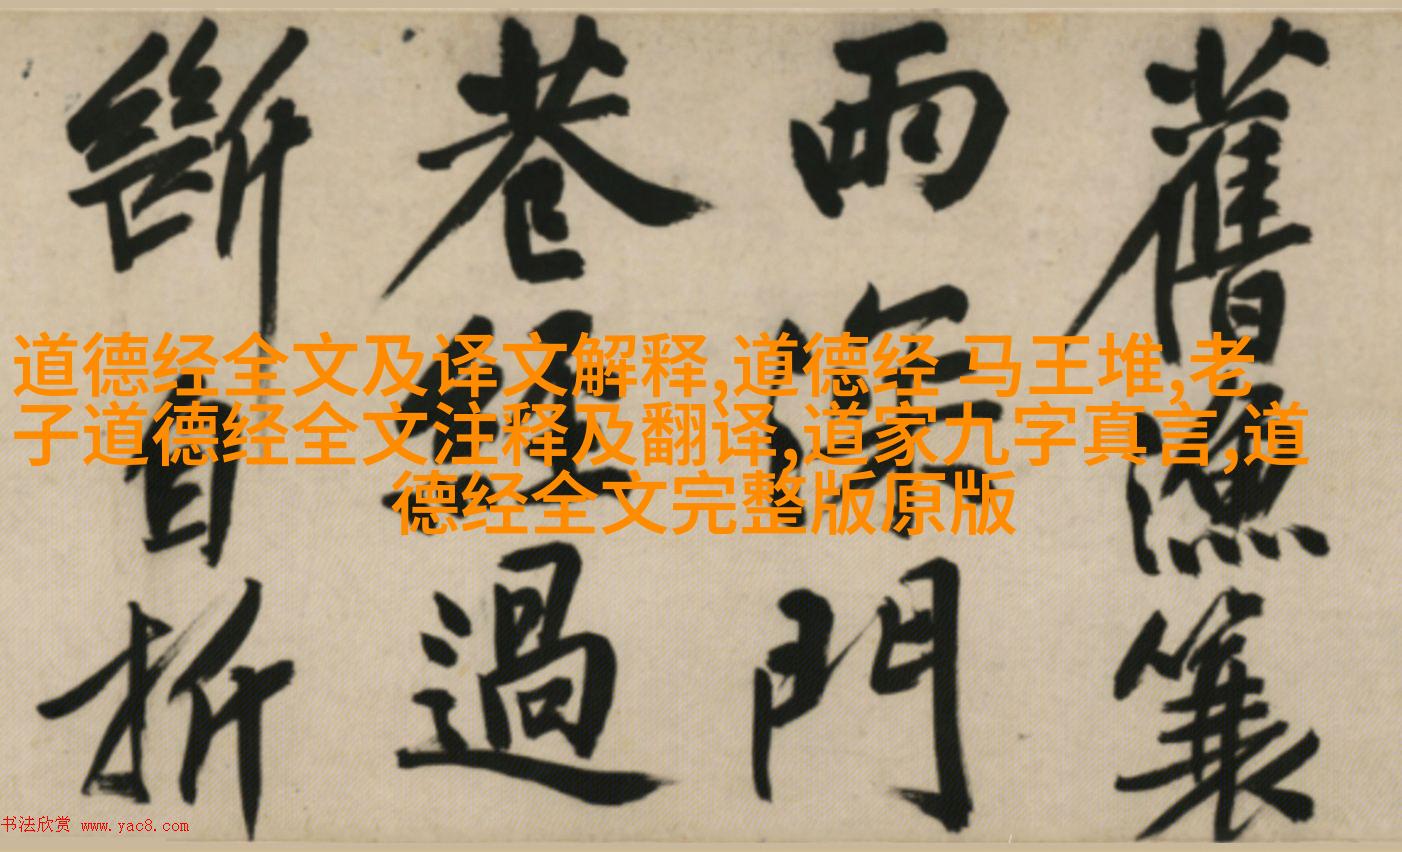 舊漁簑
雨深門
巷經過
斷自折
道德经全文及译文解释,道德经 马王堆,老
子道德经全文注释及翻译,道家九字真言,道
德经全文完整版原版
书法欣赏 www.yac8.com